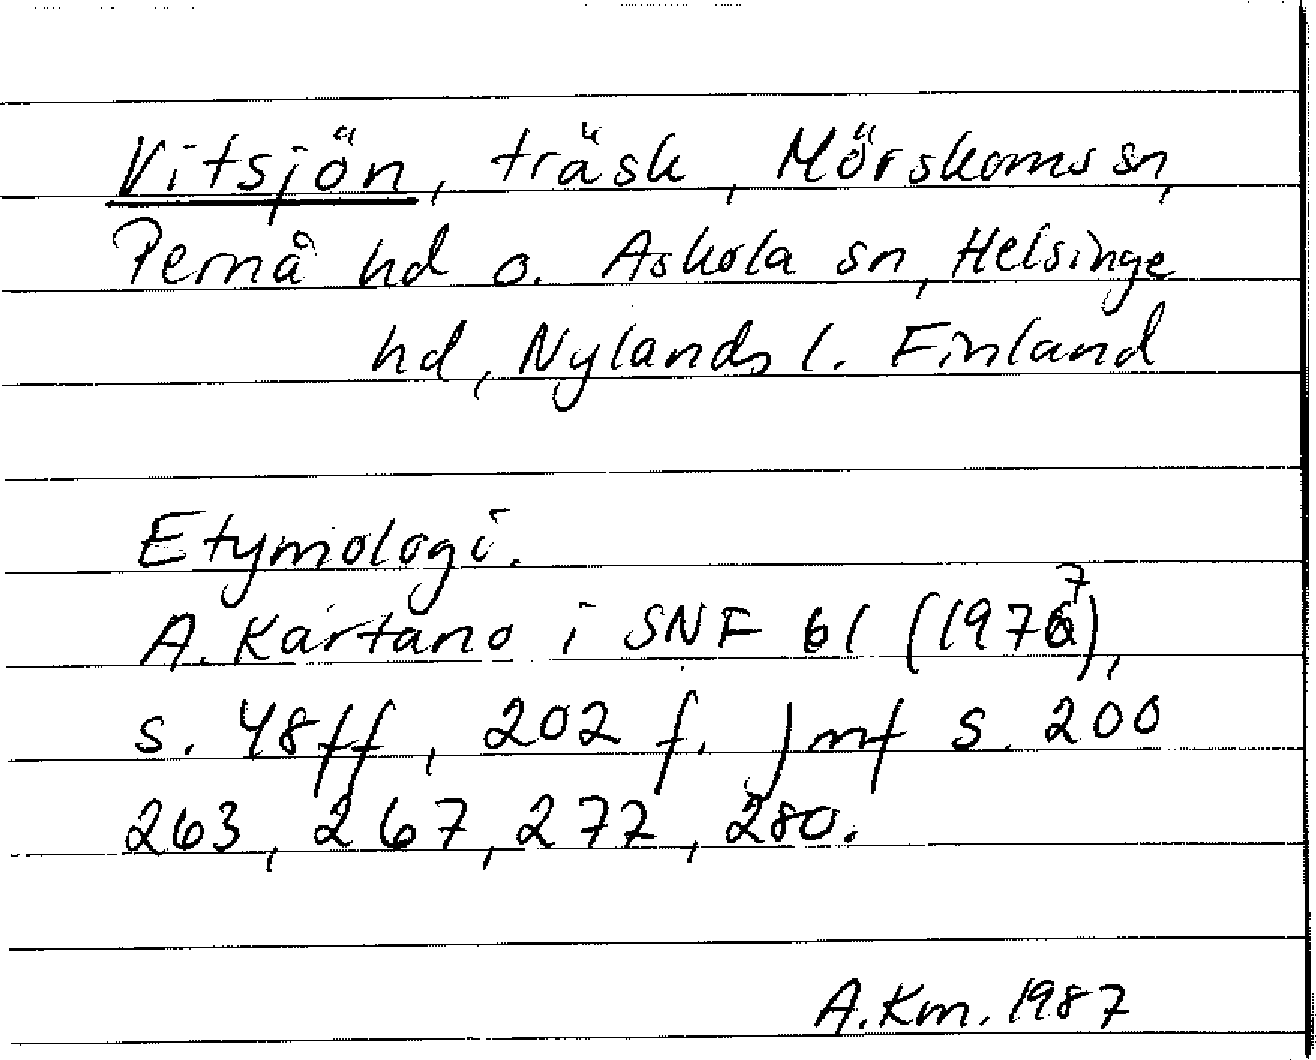 Vitsjön, träsk, Mörskoms sn,
Pernå hd o. Askola sn, Helsinge
hd, Nylands l. Finland
Etymologi.
A. Kartano i SNF 61 (1977),
s. 48ff, 202 f. Jmf s. 200
263, 267, 277, 280.
A. Km. 1987